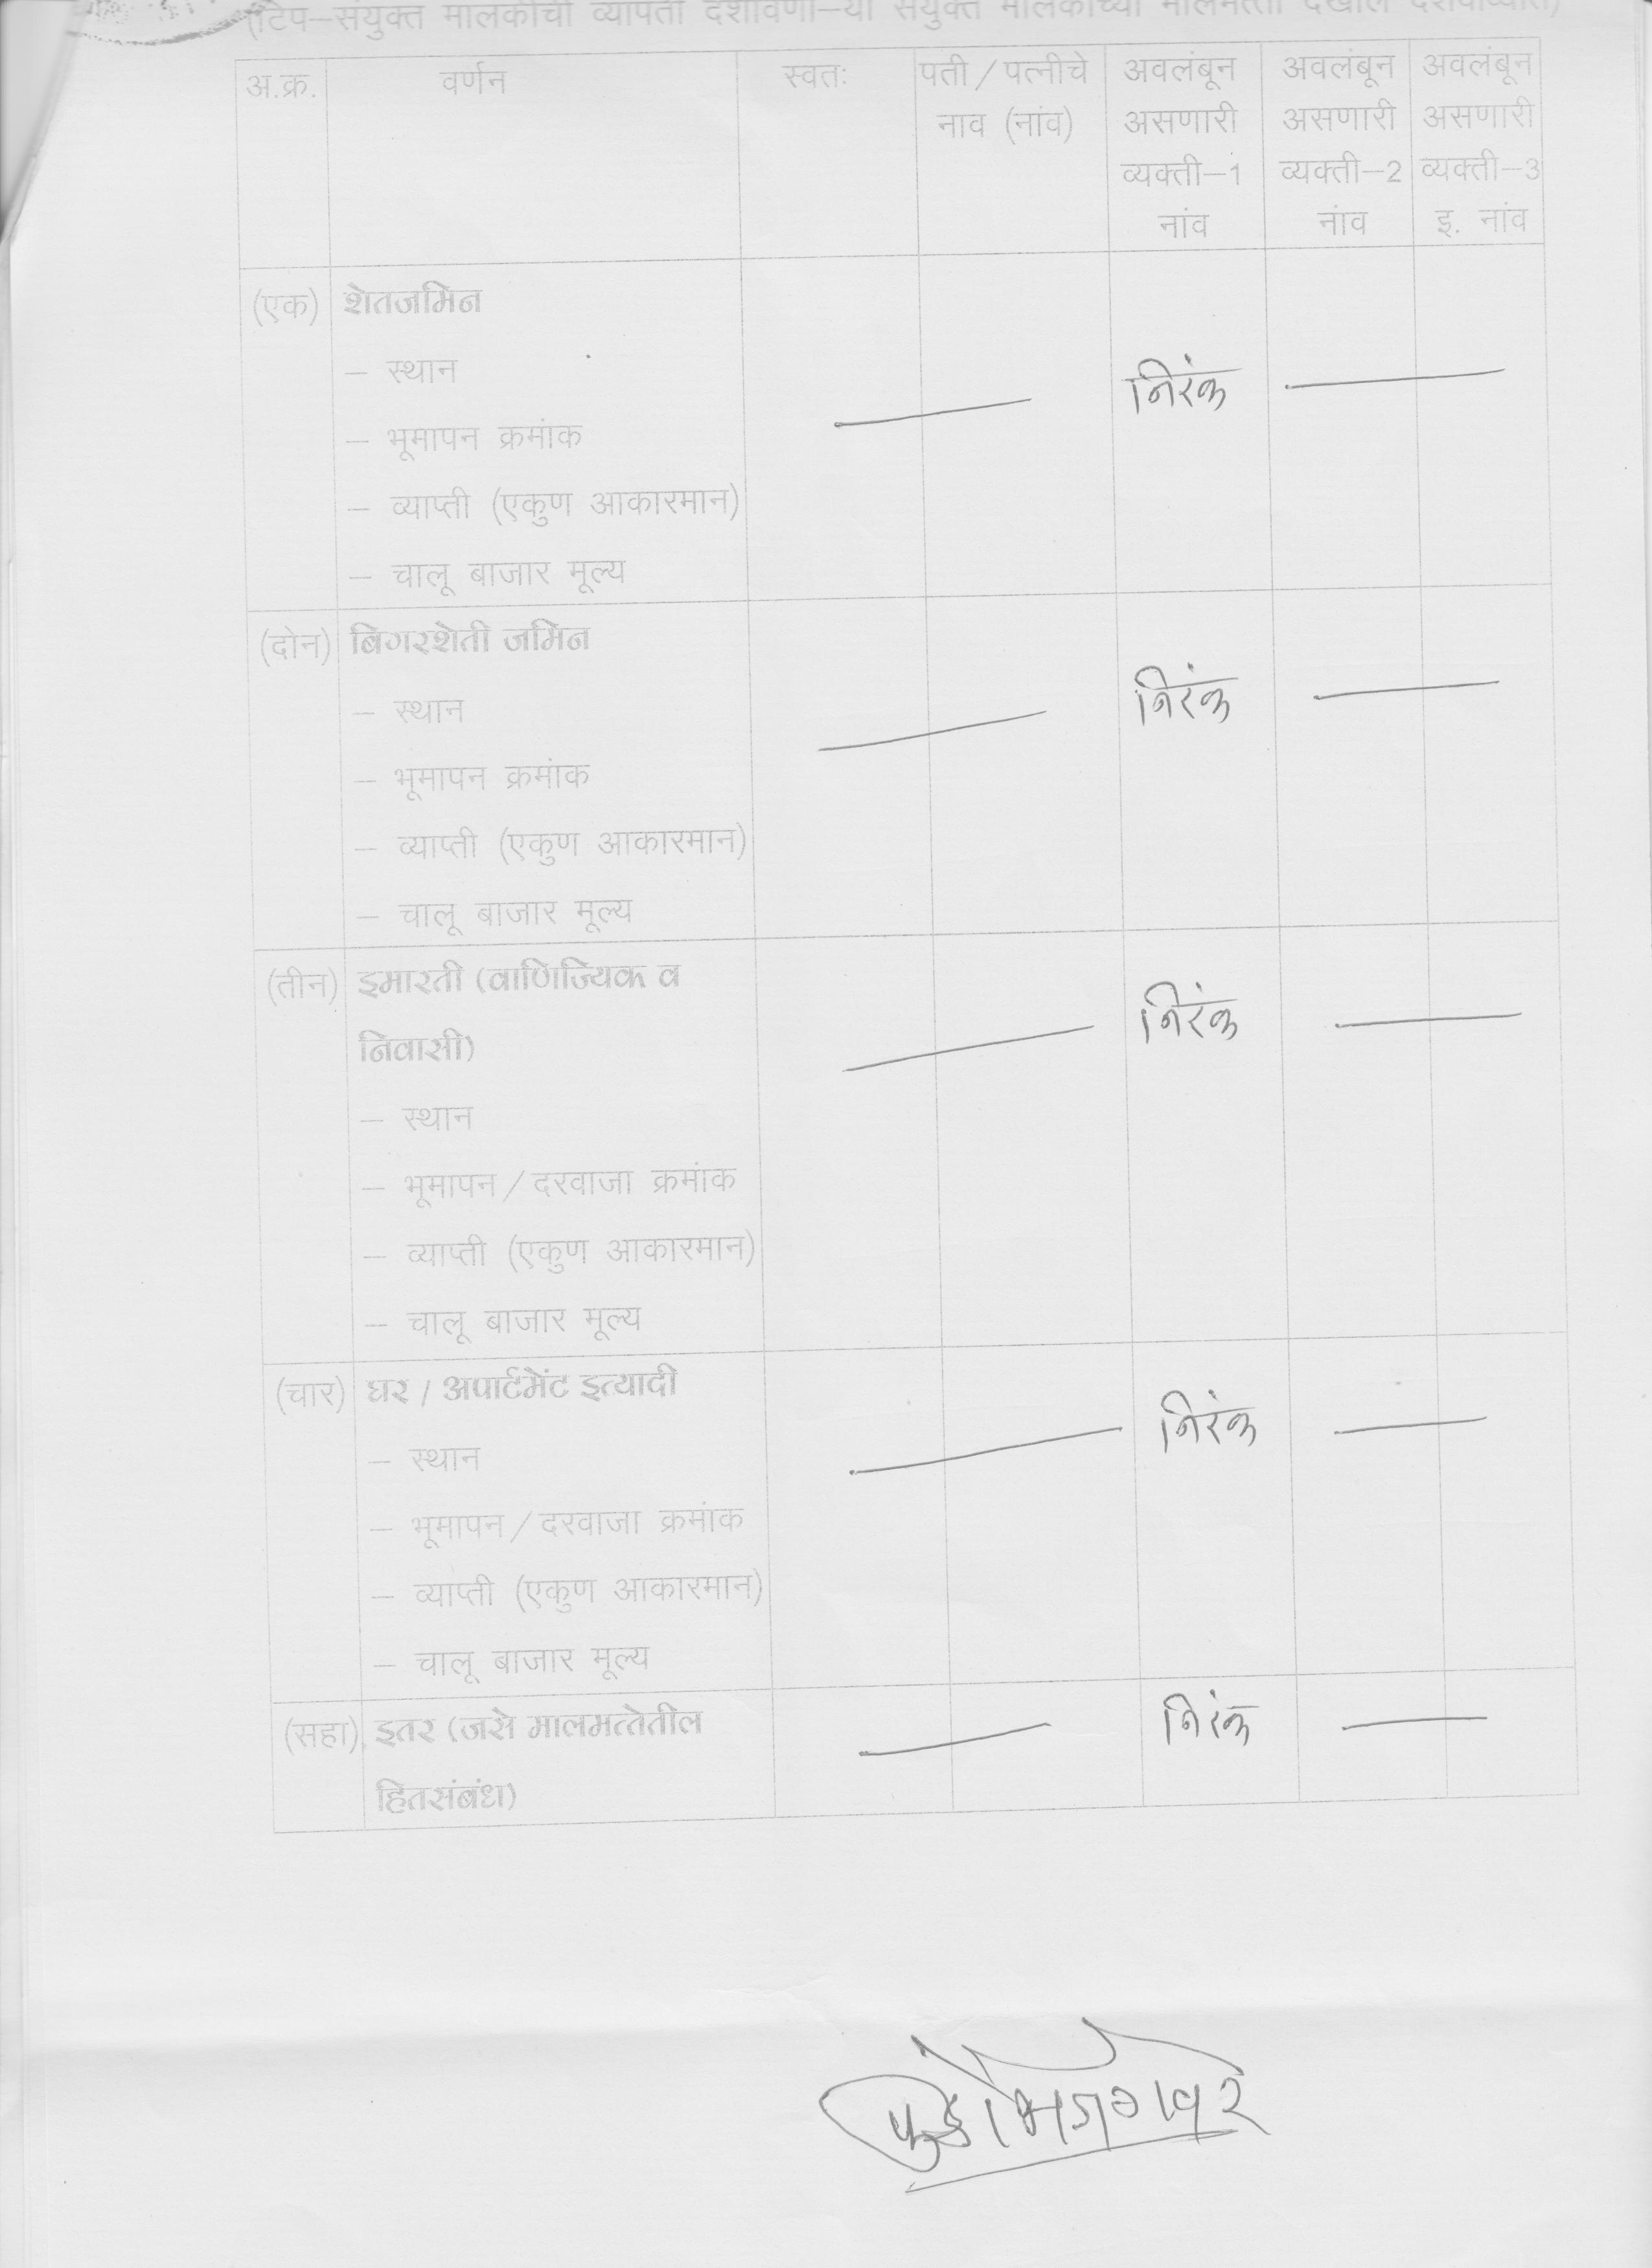 (टिप–संयुक्त मालकीची व्यापती दर्शविणा–या संयुक्त मालकीच्या मालमत्ता देखील दर्शवाव्यात)
अ.क्र. वर्णन स्वतः पती/पत्नीचे नाव (नांव) अवलंबून असणारी व्यक्ती–1 नांव अवलंबून असणारी व्यक्ती–2 नांव अवलंबून असणारी व्यक्ती–3 इ. नांव
(एक) शेतजमिन
– स्थान
निरंक
– भूमापन क्रमांक
– व्याप्ती (एकुण आकारमान)
– चालू बाजार मूल्य
(दोन) बिगरशेती जमिन
– स्थान
निरंक
– भूमापन क्रमांक
– व्याप्ती (एकुण आकारमान)
– चालू बाजार मूल्य
(तीन) इमारती (वाणिज्यिक व
निवासी)
निरंक
– स्थान
– भूमापन/दरवाजा क्रमांक
– व्याप्ती (एकुण आकारमान)
– चालू बाजार मूल्य
(चार) घर / अपार्टमेंट इत्यादी
निरंक
– स्थान
– भूमापन/दरवाजा क्रमांक
– व्याप्ती (एकुण आकारमान)
– चालू बाजार मूल्य
(सहा) इतर (जसे मालमत्तेतील निरंक
हितसंबंध)